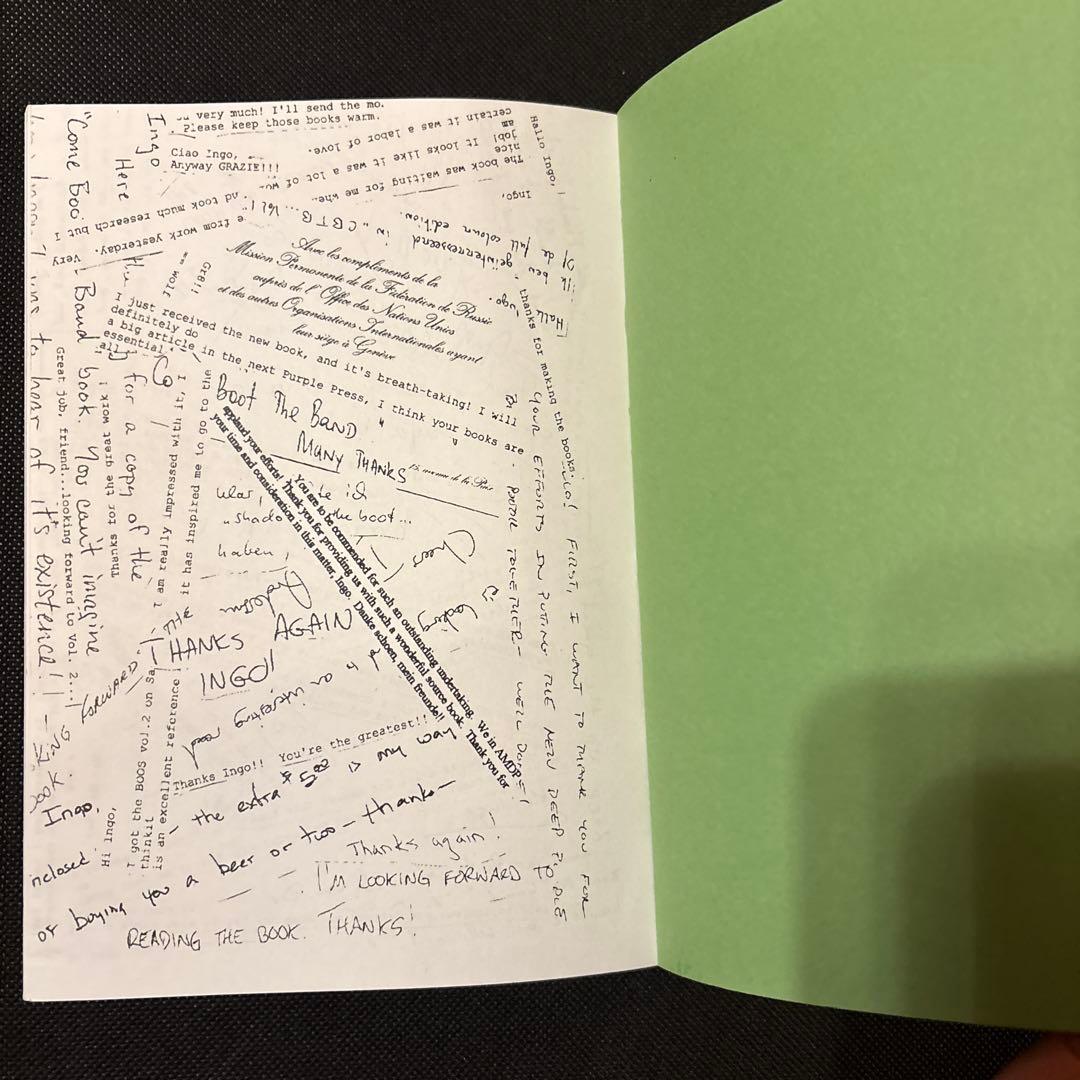 very much! I'll send the mo.
Please keep those books warm.
Ciao Ingo,
Anyway GRAZIE!!!
Ingo
Here
"Come Boo
Band" book. You can't imagine
for a copy of the
to hear of it's existence!!
Hallo Ingo,
Ingo,
The book was waiting for me whe
e from work yesterday. Very
nice job! It looks like it was a lot of wo
nd took much research but I
am certain it was a labor of love.
Ik ben geïnterresseerd
in "CBTB" Vol 1
Of de full colour edition.
Avec les compliments de la
Mission Permanente de la Fédération de Russie
auprès de l'Office des Nations Unies
et des autres Organisations Internationales ayant
leur siège à Genève
I just received the new book, and it's breath-taking! I will
definitely do a big article in the next Purple Press, I think your books are
essential.
thanks for making the books.
Boot The Band
Many Thanks
You are to be commended for such an outstanding undertaking. We in AMDP
applaud your efforts! Thank you for providing us with such a wonderful source book. Thank you for
your time and consideration in this matter, Ingo. Danke schoen, mein freunde!!
Great job, friend...looking forward to vol. 2...
Thanks for the great work!
Hi Ingo,
I got the BOOS vol.2 on Sa
I am really impressed with it, I
thinkit is an excellent reference
it has inspired me to go to the
the boot...
haben,
Cheers
THANKS AGAIN
INGO!!
FORWARD
Thanks Ingo!! You're the greatest!!
Ingo,
nclosed.
the extra $5.00 is my way
of buying you a beer or two – thanks –
Thanks again!
I'M LOOKING FORWARD TO
READING THE BOOK. THANKS!
FIRST, I WANT TO THANK YOU FOR
YOUR EFFORTS IN PUTING THE NEW DEEP PURPLE
BOOK TOGETHER – WELL DONE!